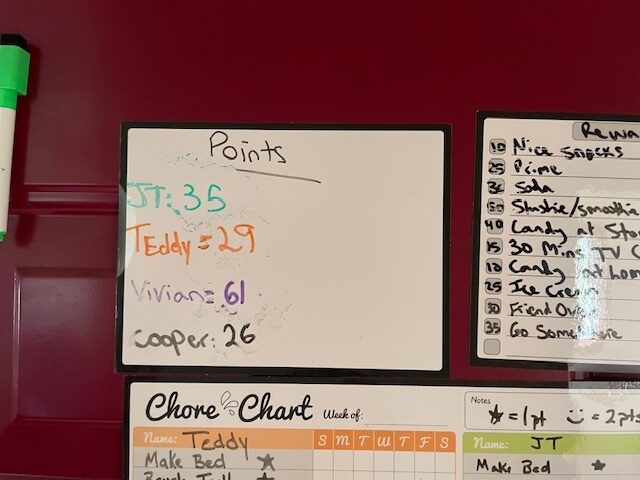 Points
JT: 35
TEddy = 29
Vivian = 61
Cooper: 26
Rewa
10 Nice Snacks
25 Prime
Soda
Slushie/smoothi
40 Candy at Sto
15 30 Mins TV
10 Candy at hom
25 Ice Cream
Friend Over
35 Go Somewhere
Chore Chart
Week of:
Notes
★ = 1pt = 2pts
Name: Teddy S M T W T F S
Make Bed ★
Name: JT
Make Bed ★